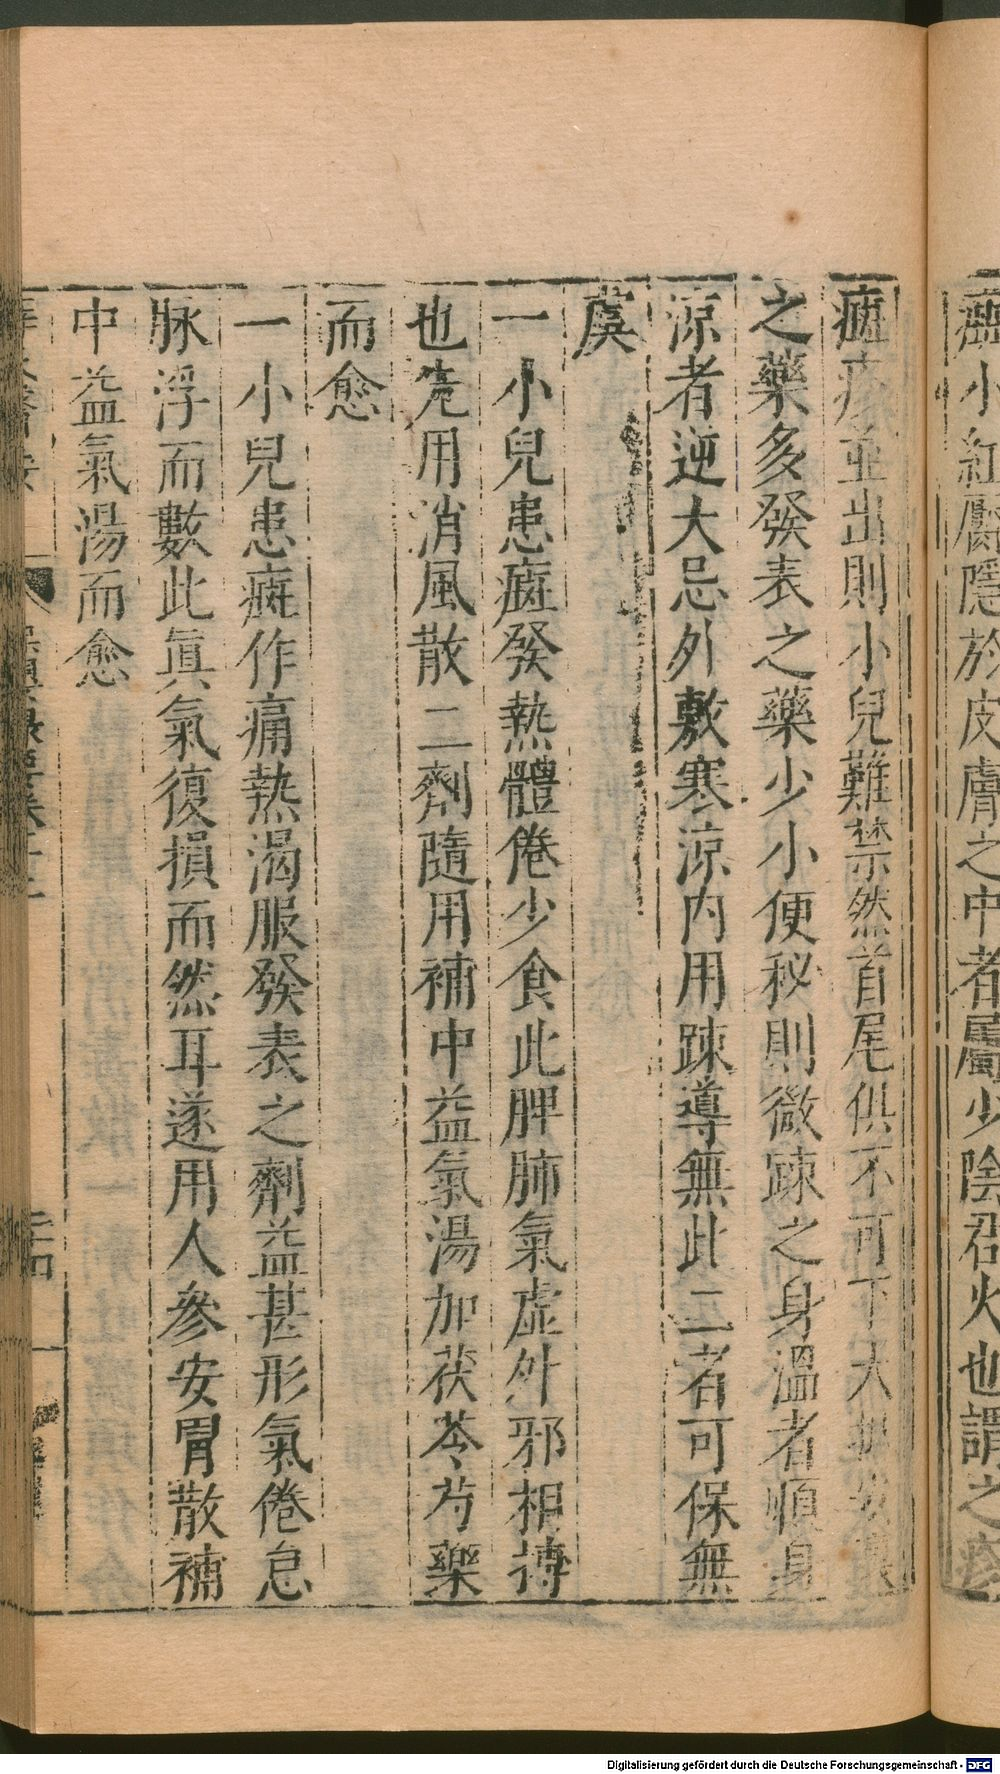 癍小紅靨隱於皮膚之中者屬少陰君火也謂之疹
癍疹並出則小兒難禁然首尾俱不可下大抵安裏
之藥多發表之藥少小便秘則微踈之身溫者順身
涼者逆大忌外敷寒涼內用踈導無此二者可保無
虞
一小兒患癍發熱體倦少食此脾肺氣虛外邪相搏
也先用消風散二劑隨用補中益氣湯加茯苓芍藥
而愈
一小兒患癍作痛熱渴服發表之劑益甚形氣倦怠
脉浮而數此眞氣復損而然耳遂用人參安胃散補
中益氣湯而愈
二十四
Digitalisierung gefördert durch die Deutsche Forschungsgemeinschaft - DFG